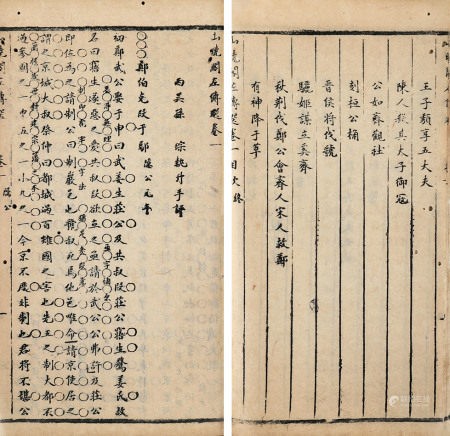 王子頹享五大夫
陳人殺其太子御寇
公如齊觀社
刻桓公桷
晉侯將伐虢
驪姬謀立奚齊
秋荊伐鄭公會齊人宋人救鄭
有神降于莘
山曉閣左傳選卷一目次終
山曉閣左傳選卷一
西吳孫 琮執升手評
鄭伯克段于鄢 隱公元年
初鄭武公娶于申曰武姜生莊公及共叔段莊公寤生驚姜氏故
名曰寤生遂惡之愛共叔段欲立之亟請於武公公弗許及莊公
即位為之請制公曰制巖邑也虢叔死焉他邑唯命請京使居之
謂之京城大叔祭仲曰都城過百雉國之害也先王之制大都不
過參國之一中五之一小九之一今京不度非制也君將不堪公